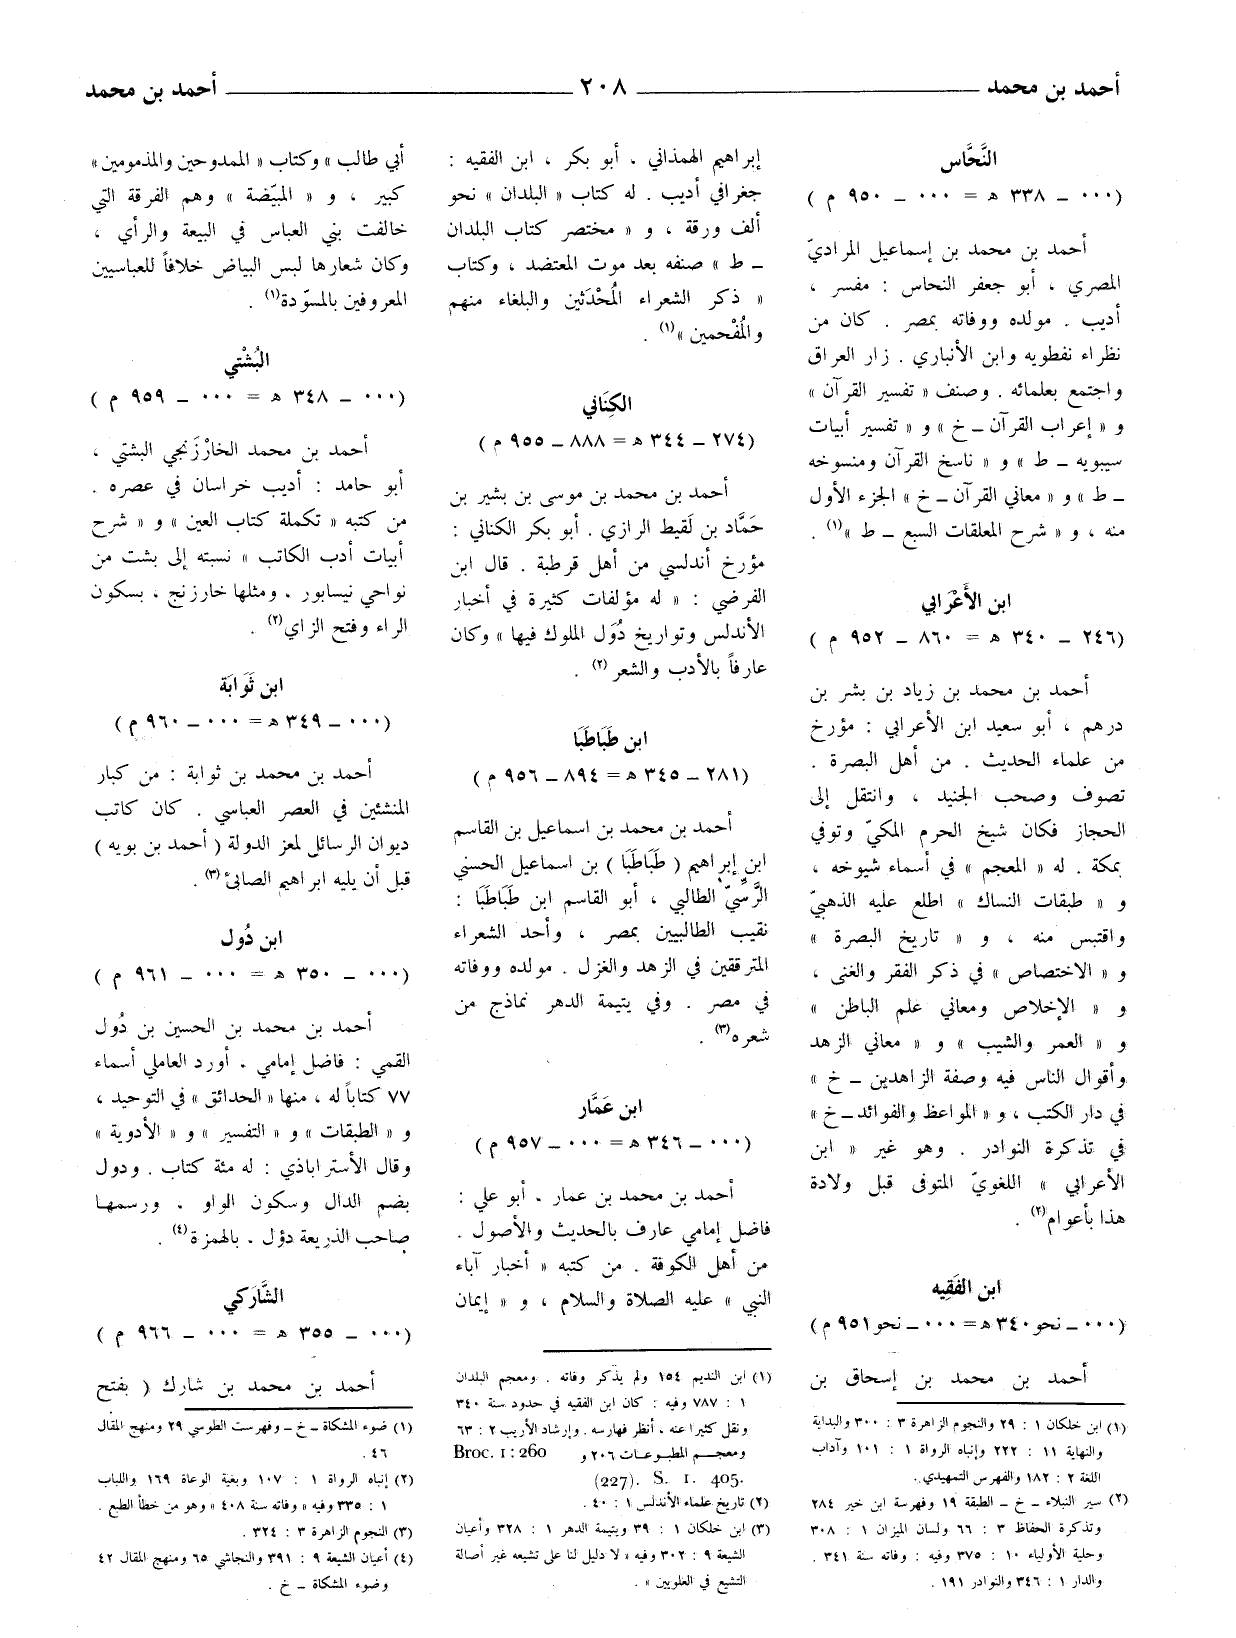 أحمد بن محمد ــــ ٢٠٨ ــــ أحمد بن محمد
النَّحَّاس
(٠٠٠ ــ ٣٣٨ هـ = ٠٠٠ ــ ٩٥٠ م)
أحمد بن محمد بن إسماعيل المراديّ
المصري ، أبو جعفر النحاس : مفسر ،
أديب . مولده ووفاته بمصر . كان من
نظراء نفطويه وابن الأنباري . زار العراق
واجتمع بعلمائه . وصنف « تفسير القرآن »
و « إعراب القرآن ــ خ » و « تفسير أبيات
سيبويه ــ ط » و « ناسخ القرآن ومنسوخه
ــ ط » و « معاني القرآن ــ خ » الجزء الأول
منه ، و « شرح المعلقات السبع ــ ط »(١) .
ابن الأَعْرَابي
(٢٤٦ ــ ٣٤٠ هـ = ٨٦٠ ــ ٩٥٢ م)
أحمد بن محمد بن زياد بن بشر بن
درهم ، أبو سعيد ابن الأعرابي : مؤرخ
من علماء الحديث . من أهل البصرة .
تصوف وصحب الجنيد ، وانتقل إلى
الحجاز فكان شيخ الحرم المكيّ وتوفي
بمكة . له « المعجم » في أسماء شيوخه ،
و « طبقات النساك » اطلع عليه الذهبيّ
واقتبس منه ، و « تاريخ البصرة »
و « الاختصاص » في ذكر الفقر والغنى ،
و « الإخلاص ومعاني علم الباطن »
و « العمر والشيب » و « معاني الزهد
وأقوال الناس فيه وصفة الزاهدين ــ خ »
في دار الكتب ، و « المواعظ والفوائد ــ خ »
في تذكرة النوادر . وهو غير « ابن
الأعرابي » اللغويّ المتوفى قبل ولادة
هذا بأعوام(٢) .
ابن الفَقِيه
(٠٠٠ ــ نحو ٣٤٠ هـ = ٠٠٠ ــ نحو ٩٥١ م)
أحمد بن محمد بن إسحاق بن
(١) ابن خلكان ١ : ٢٩ والنجوم الزاهرة ٣ : ٣٠٠ والبداية
والنهاية ١١ : ٢٢٢ وإنباه الرواة ١ : ١٠١ وآداب
اللغة ٢ : ١٨٢ والفهرس التمهيدي .
(٢) سير النبلاء ــ خ ــ الطبقة ١٩ وفهرسة ابن خير ٢٨٤
وتذكرة الحفاظ ٣ : ٦٦ ولسان الميزان ١ : ٣٠٨
وحلية الأولياء ١٠ : ٣٧٥ وفيه : وفاته سنة ٣٤١ .
والدار ١ : ٣٤٦ والنوادر ١٩١ .
إبراهيم الهمذاني ، أبو بكر ، ابن الفقيه :
جغرافي أديب . له كتاب « البلدان » نحو
ألف ورقة ، و « مختصر كتاب البلدان
ــ ط » صنفه بعد موت المعتضد ، وكتاب
« ذكر الشعراء المُحْدَثين والبلغاء منهم
والمُفْحمين »(١) .
الكِنَاني
(٢٧٤ ــ ٣٤٤ هـ = ٨٨٨ ــ ٩٥٥ م)
أحمد بن محمد بن موسى بن بشير بن
حَمَّاد بن لَقيط الرازي . أبو بكر الكناني :
مؤرخ أندلسي من أهل قرطبة . قال ابن
الفرضي : « له مؤلفات كثيرة في أخبار
الأندلس وتواريخ دُوَل الملوك فيها » وكان
عارفاً بالأدب والشعر (٢) .
ابن طَبَاطَبَا
(٢٨١ ــ ٣٤٥ هـ = ٨٩٤ ــ ٩٥٦ م)
أحمد بن محمد بن اسماعيل بن القاسم
ابن إبراهيم ( طَبَاطَبَا ) بن اسماعيل الحسني
الرَّسِّيّ الطالبي ، أبو القاسم ابن طَبَاطَبَا :
نقيب الطالبيين بمصر ، وأحد الشعراء
المترققين في الزهد والغزل . مولده ووفاته
في مصر . وفي يتيمة الدهر نماذج من
شعره(٣) .
ابن عَمَّار
(٠٠٠ ــ ٣٤٦ هـ = ٠٠٠ ــ ٩٥٧ م)
أحمد بن محمد بن عمار ، أبو علي :
فاضل إمامي عارف بالحديث والأصول .
من أهل الكوفة . من كتبه « أخبار آباء
النبي » عليه الصلاة والسلام ، و « إيمان
(١) ابن النديم ١٥٤ ولم يذكر وفاته . ومعجم البلدان
١ : ٧٨٧ وفيه : كان ابن الفقيه في حدود سنة ٣٤٠
ونقل كثيرا عنه ، أنظر فهارسه . وإرشاد الأريب ٢ : ٦٣
ومعجم المطبوعات ٢٠٦ و Broc. I : 260
(227). S. I. 405.
(٢) تاريخ علماء الأندلس ١ : ٤٠ .
(٣) ابن خلكان ١ : ٣٩ ويتيمة الدهر ١ : ٣٢٨ وأعيان
الشيعة ٩ : ٣٠٢ وفيه « لا دليل لنا على تشيعه غير أصالة
التشيع في العلويين » .
أبي طالب » وكتاب « الممدوحين والمذمومين »
كبير ، و « المبيّضة » وهم الفرقة التي
خالفت بني العباس في البيعة والرأي ،
وكان شعارها لبس البياض خلافاً للعباسيين
المعروفين بالمسوّدة(١) .
البُشْتي
(٠٠٠ ــ ٣٤٨ هـ = ٠٠٠ ــ ٩٥٩ م)
أحمد بن محمد الخارْزَنجي البشتي ،
أبو حامد : أديب خراسان في عصره .
من كتبه « تكملة كتاب العين » و « شرح
أبيات أدب الكاتب » نسبته إلى بشت من
نواحي نيسابور ، ومثلها خارزنج ، بسكون
الراء وفتح الزاي(٢) .
ابن ثَوَابَة
(٠٠٠ ــ ٣٤٩ هـ = ٠٠٠ ــ ٩٦٠ م)
أحمد بن محمد بن ثوابة : من كبار
المنشئين في العصر العباسي . كان كاتب
ديوان الرسائل لمعز الدولة ( أحمد بن بويه )
قبل أن يليه ابراهيم الصابئ(٣) .
ابن دُول
(٠٠٠ ــ ٣٥٠ هـ = ٠٠٠ ــ ٩٦١ م)
أحمد بن محمد بن الحسين بن دُول
القمي : فاضل إمامي . أورد العاملي أسماء
٧٧ كتاباً له ، منها « الحدائق » في التوحيد ،
و « الطبقات » و « التفسير » و « الأدوية »
وقال الأستراباذي : له مئة كتاب . ودول
بضم الدال وسكون الواو . ورسمها
صاحب الذريعة دؤل . بالهمزة(٤) .
الشَّارَكي
(٠٠٠ ــ ٣٥٥ هـ = ٠٠٠ ــ ٩٦٦ م)
أحمد بن محمد بن شارك ( بفتح
(١) ضوء المشكاة ــ خ ــ وفهرست الطوسي ٢٩ ومنهج المقال
٤٦ .
(٢) إنباه الرواة ١ : ١٠٧ وبغية الوعاة ١٦٩ واللباب
١ : ٣٣٥ وفيه « وفاته سنة ٤٠٨ » وهو من خطأ الطبع .
(٣) النجوم الزاهرة ٣ : ٣٢٤ .
(٤) أعيان الشيعة ٩ : ٣٩١ والنجاشي ٦٥ ومنهج المقال ٤٢
وضوء المشكاة ــ خ .